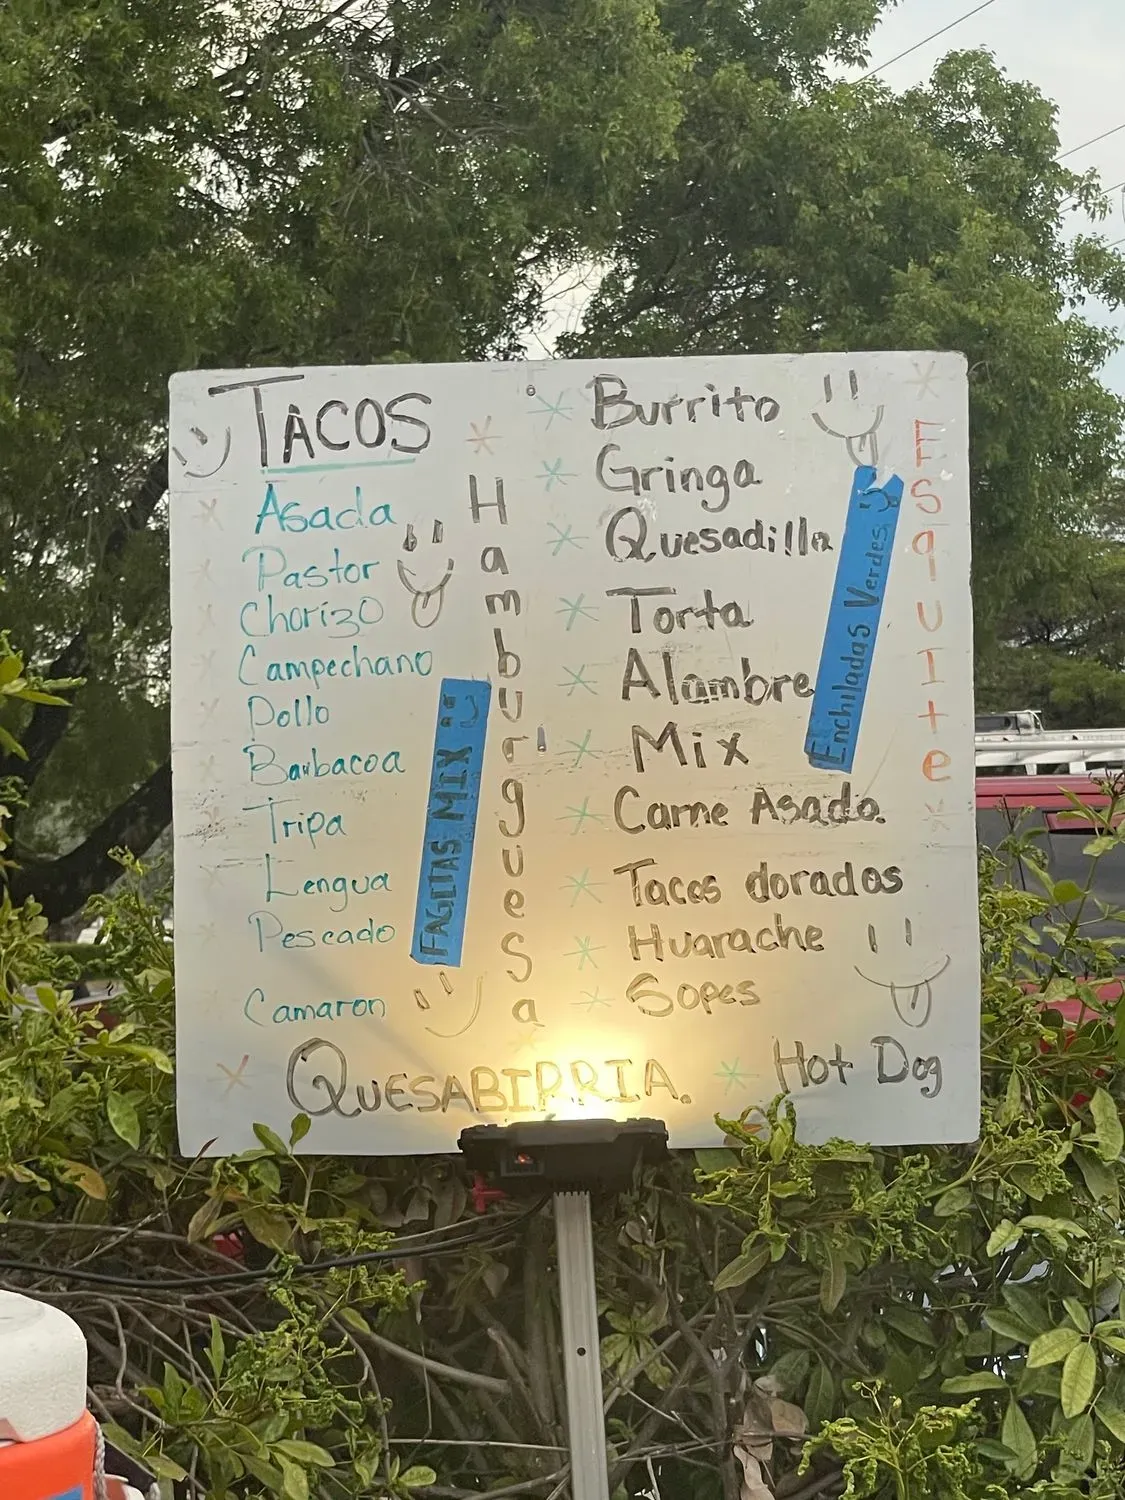 TACOS
Asada
Pastor
Chorizo
Campechano
Pollo
Barbacoa
Tripa
Lengua
Pescado
Camaron
FAGITAS MIX
Hamburguesa
Burrito
Gringa
Quesadilla
Torta
Alambre
Mix
Carne Asada.
Tacos dorados
Huarache
Sopes
Enchiladas Verdes
EsqUIte
QUESABIRRIA.
Hot Dog